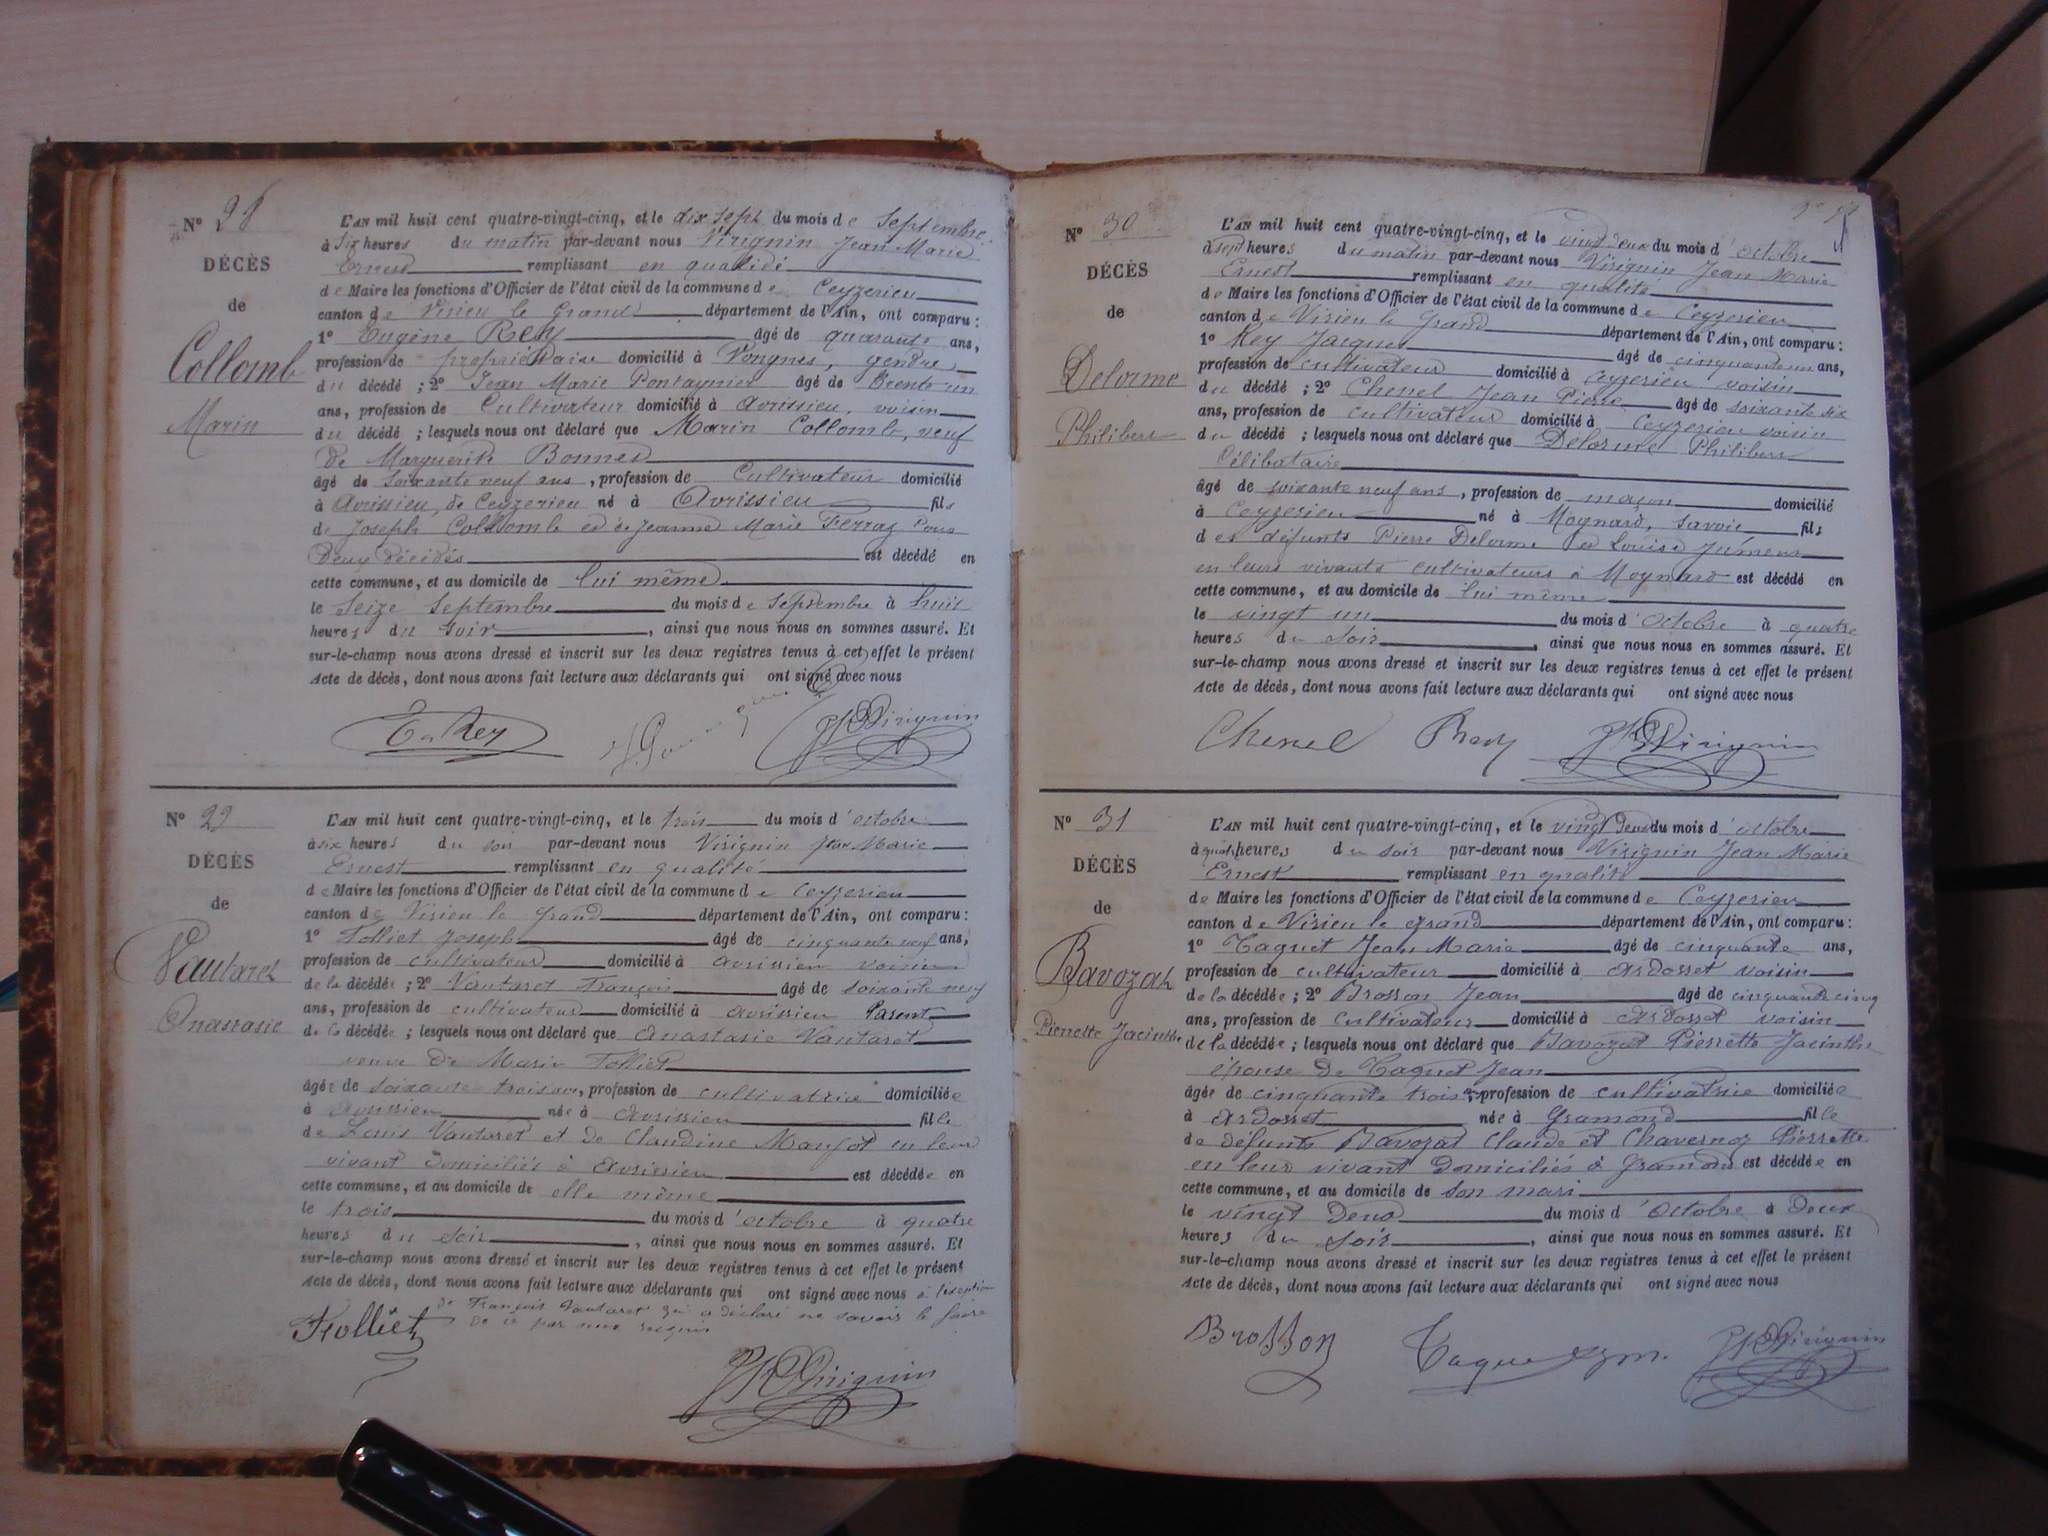 N° 28
DÉCÈS
de
Collomb
Marin
L'AN mil huit cent quatre-vingt-cinq, et le dix sept du mois de Septembre
à six heures du matin par-devant nous Virignin Jean Marie
Ernest remplissant en qualité
de Maire les fonctions d'Officier de l'état civil de la commune de Ceyzerieu
canton de Virieu le Grand département de l'Ain, ont comparu :
1° Eugène Rey âgé de quarante ans,
profession de propriétaire domicilié à Vongnes, gendre
du décédé ; 2° Jean Marie âgé de trente un
ans, profession de Cultivateur domicilié à Avrissieu, voisin
du décédé ; lesquels nous ont déclaré que Marin Collomb, veuf
de Marguerite Bonnet
âgé de soixante neuf ans, profession de Cultivateur domicilié
à Avrissieu, de Ceyzerieu né à Avrissieu fils
de Joseph Collomb et de Jeanne Marie Ferraz tous
deux décédés est décédé en
cette commune, et au domicile de lui même
le seize Septembre du mois de Septembre à huit
heures du soir, ainsi que nous nous en sommes assuré. Et
sur-le-champ nous avons dressé et inscrit sur les deux registres tenus à cet effet le présent
Acte de décès, dont nous avons fait lecture aux déclarants qui ont signé avec nous
Rey Virignin
N° 29
DÉCÈS
de
Vautaret
Anastasie
L'AN mil huit cent quatre-vingt-cinq, et le trois du mois d'octobre
à six heures du soir par-devant nous Virignin Jean Marie
Ernest remplissant en qualité
de Maire les fonctions d'Officier de l'état civil de la commune de Ceyzerieu
canton de Virieu le Grand département de l'Ain, ont comparu :
1° Folliet Joseph âgé de cinquante neuf ans,
profession de cultivateur domicilié à avrissieu voisin
de la décédée ; 2° Vautaret François âgé de soixante neuf
ans, profession de cultivateur domicilié à avrissieu Parent
de la décédée ; lesquels nous ont déclaré que Anastasie Vautaret
veuve de Marin Folliet
âgée de soixante trois ans, profession de cultivatrice domiciliée
à avrissieu née à avrissieu fille
de Louis Vautaret et de Claudine en leur
vivant domiciliés à avrissieu est décédée en
cette commune, et au domicile de elle même
le trois du mois d'octobre à quatre
heures du soir, ainsi que nous nous en sommes assuré. Et
sur-le-champ nous avons dressé et inscrit sur les deux registres tenus à cet effet le présent
Acte de décès, dont nous avons fait lecture aux déclarants qui ont signé avec nous à l'exception
de François Vautaret qui a déclaré ne savoir le faire
de ce par nous requis
Folliet
Virignin
N° 30
DÉCÈS
de
Delorme
Philibert
L'AN mil huit cent quatre-vingt-cinq, et le vingt deux du mois d'octobre
à sept heures du matin par-devant nous Virignin Jean Marie
Ernest remplissant en qualité
de Maire les fonctions d'Officier de l'état civil de la commune de Ceyzerieu
canton de Virieu le Grand département de l'Ain, ont comparu :
1° Rey Jacques âgé de cinquante un ans,
profession de cultivateur domicilié à ceyzerieu voisin
du décédé ; 2° Chenel Jean Pierre âgé de soixante six
ans, profession de cultivateur domicilié à Ceyzerieu voisin
du décédé ; lesquels nous ont déclaré que Delorme Philibert
Célibataire
âgé de soixante neuf ans, profession de maçon domicilié
à Ceyzerieu né à Mognard, Savoie fils
des défunts Pierre Delorme et Louise
en leurs vivants cultivateurs à Mognard est décédé en
cette commune, et au domicile de lui même
le vingt un du mois d'octobre à quatre
heures du soir, ainsi que nous nous en sommes assuré. Et
sur-le-champ nous avons dressé et inscrit sur les deux registres tenus à cet effet le présent
Acte de décès, dont nous avons fait lecture aux déclarants qui ont signé avec nous
Chenel Rey Virignin
N° 31
DÉCÈS
de
Bavozat
Pierrette Jacinthe
L'AN mil huit cent quatre-vingt-cinq, et le vingt deux du mois d'octobre
à quatre heures du soir par-devant nous Virignin Jean Marie
Ernest remplissant en qualité
de Maire les fonctions d'Officier de l'état civil de la commune de Ceyzerieu
canton de Virieu le grand département de l'Ain, ont comparu :
1° Taguet Jean Marie âgé de cinquante ans,
profession de cultivateur domicilié à Ardosset voisin
de la décédée ; 2° Brosson Jean âgé de cinquante cinq
ans, profession de cultivateur domicilié à Ardosset voisin
de la décédée ; lesquels nous ont déclaré que Bavozat Pierrette Jacinthe
épouse de Taguet Jean
âgée de cinquante trois ans, profession de cultivatrice domiciliée
à Ardosset née à Gramond fille
de défunts Bavozat Claude et Chavernoz Pierrette
en leur vivant domiciliés à Gramond est décédée en
cette commune, et au domicile de son mari
le vingt deux du mois d'octobre à deux
heures du soir, ainsi que nous nous en sommes assuré. Et
sur-le-champ nous avons dressé et inscrit sur les deux registres tenus à cet effet le présent
Acte de décès, dont nous avons fait lecture aux déclarants qui ont signé avec nous
Brosson Virignin